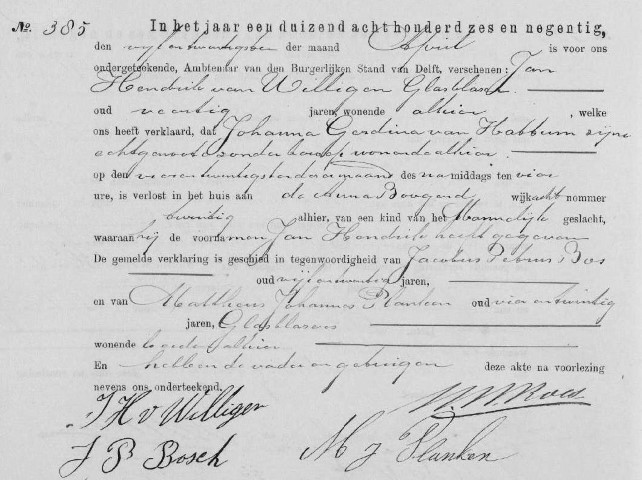 No. 385 In het jaar een duizend acht honderd zes en negentig,
den vijfentwintigsten der maand April is voor ons
ondergeteekende, Ambtenaar van den Burgerlijken Stand van Delft, verschenen: Jan
Hendrik van Willigen Glasblazer
oud veertig jaren, wonende alhier, welke
ons heeft verklaard, dat Johanna Gerdina van Hattum zijne
echtgenoote zonder beroep wonende alhier
op den vierentwintigsten dezer maand des namiddags ten vier
ure, is verlost in het huis aan de Anna Boogerd wijk acht nommer
twintig alhier, van een kind van het Mannelijke geslacht,
waaraan hij de voornamen Jan Hendrik heeft gegeven
De gemelde verklaring is geschied in tegenwoordigheid van Jacobus Petrus Bos
oud vijfentwintig jaren,
en van Mattheus Johannes Planken oud vierentwintig
jaren, Glasblazers
wonende beiden alhier
En hebben de vader en getuigen deze akte na voorlezing
nevens ons onderteekend.
J H v Willigen
J P Bosch M J Planken